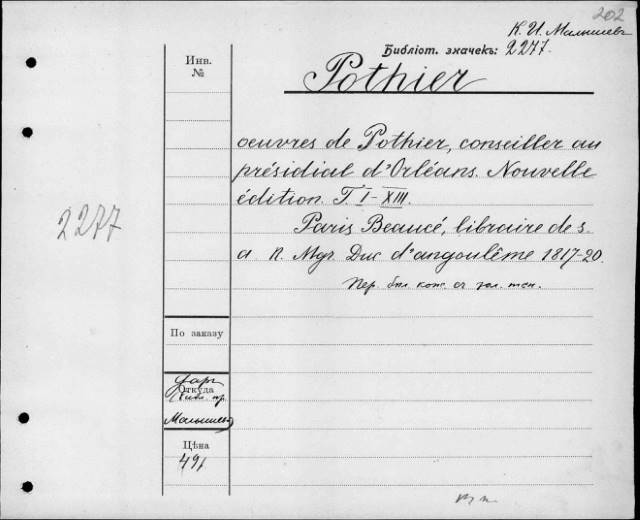 202
К. И. Малышевъ
Библіот. значекъ: 2277.
Инв.
№
Pothier
oeuvres de Pothier, conseiller au
présidial d'Orléans. Nouvelle
édition. T. I–XIII.
2277
Paris Beaucé, libraire de s.
a. R. Mgr. Duc d'angoulême 1817-20.
Пер. бѣл. кож. съ зол. тсн.
По заказу
Откуда
Малышевъ
Цѣна
49